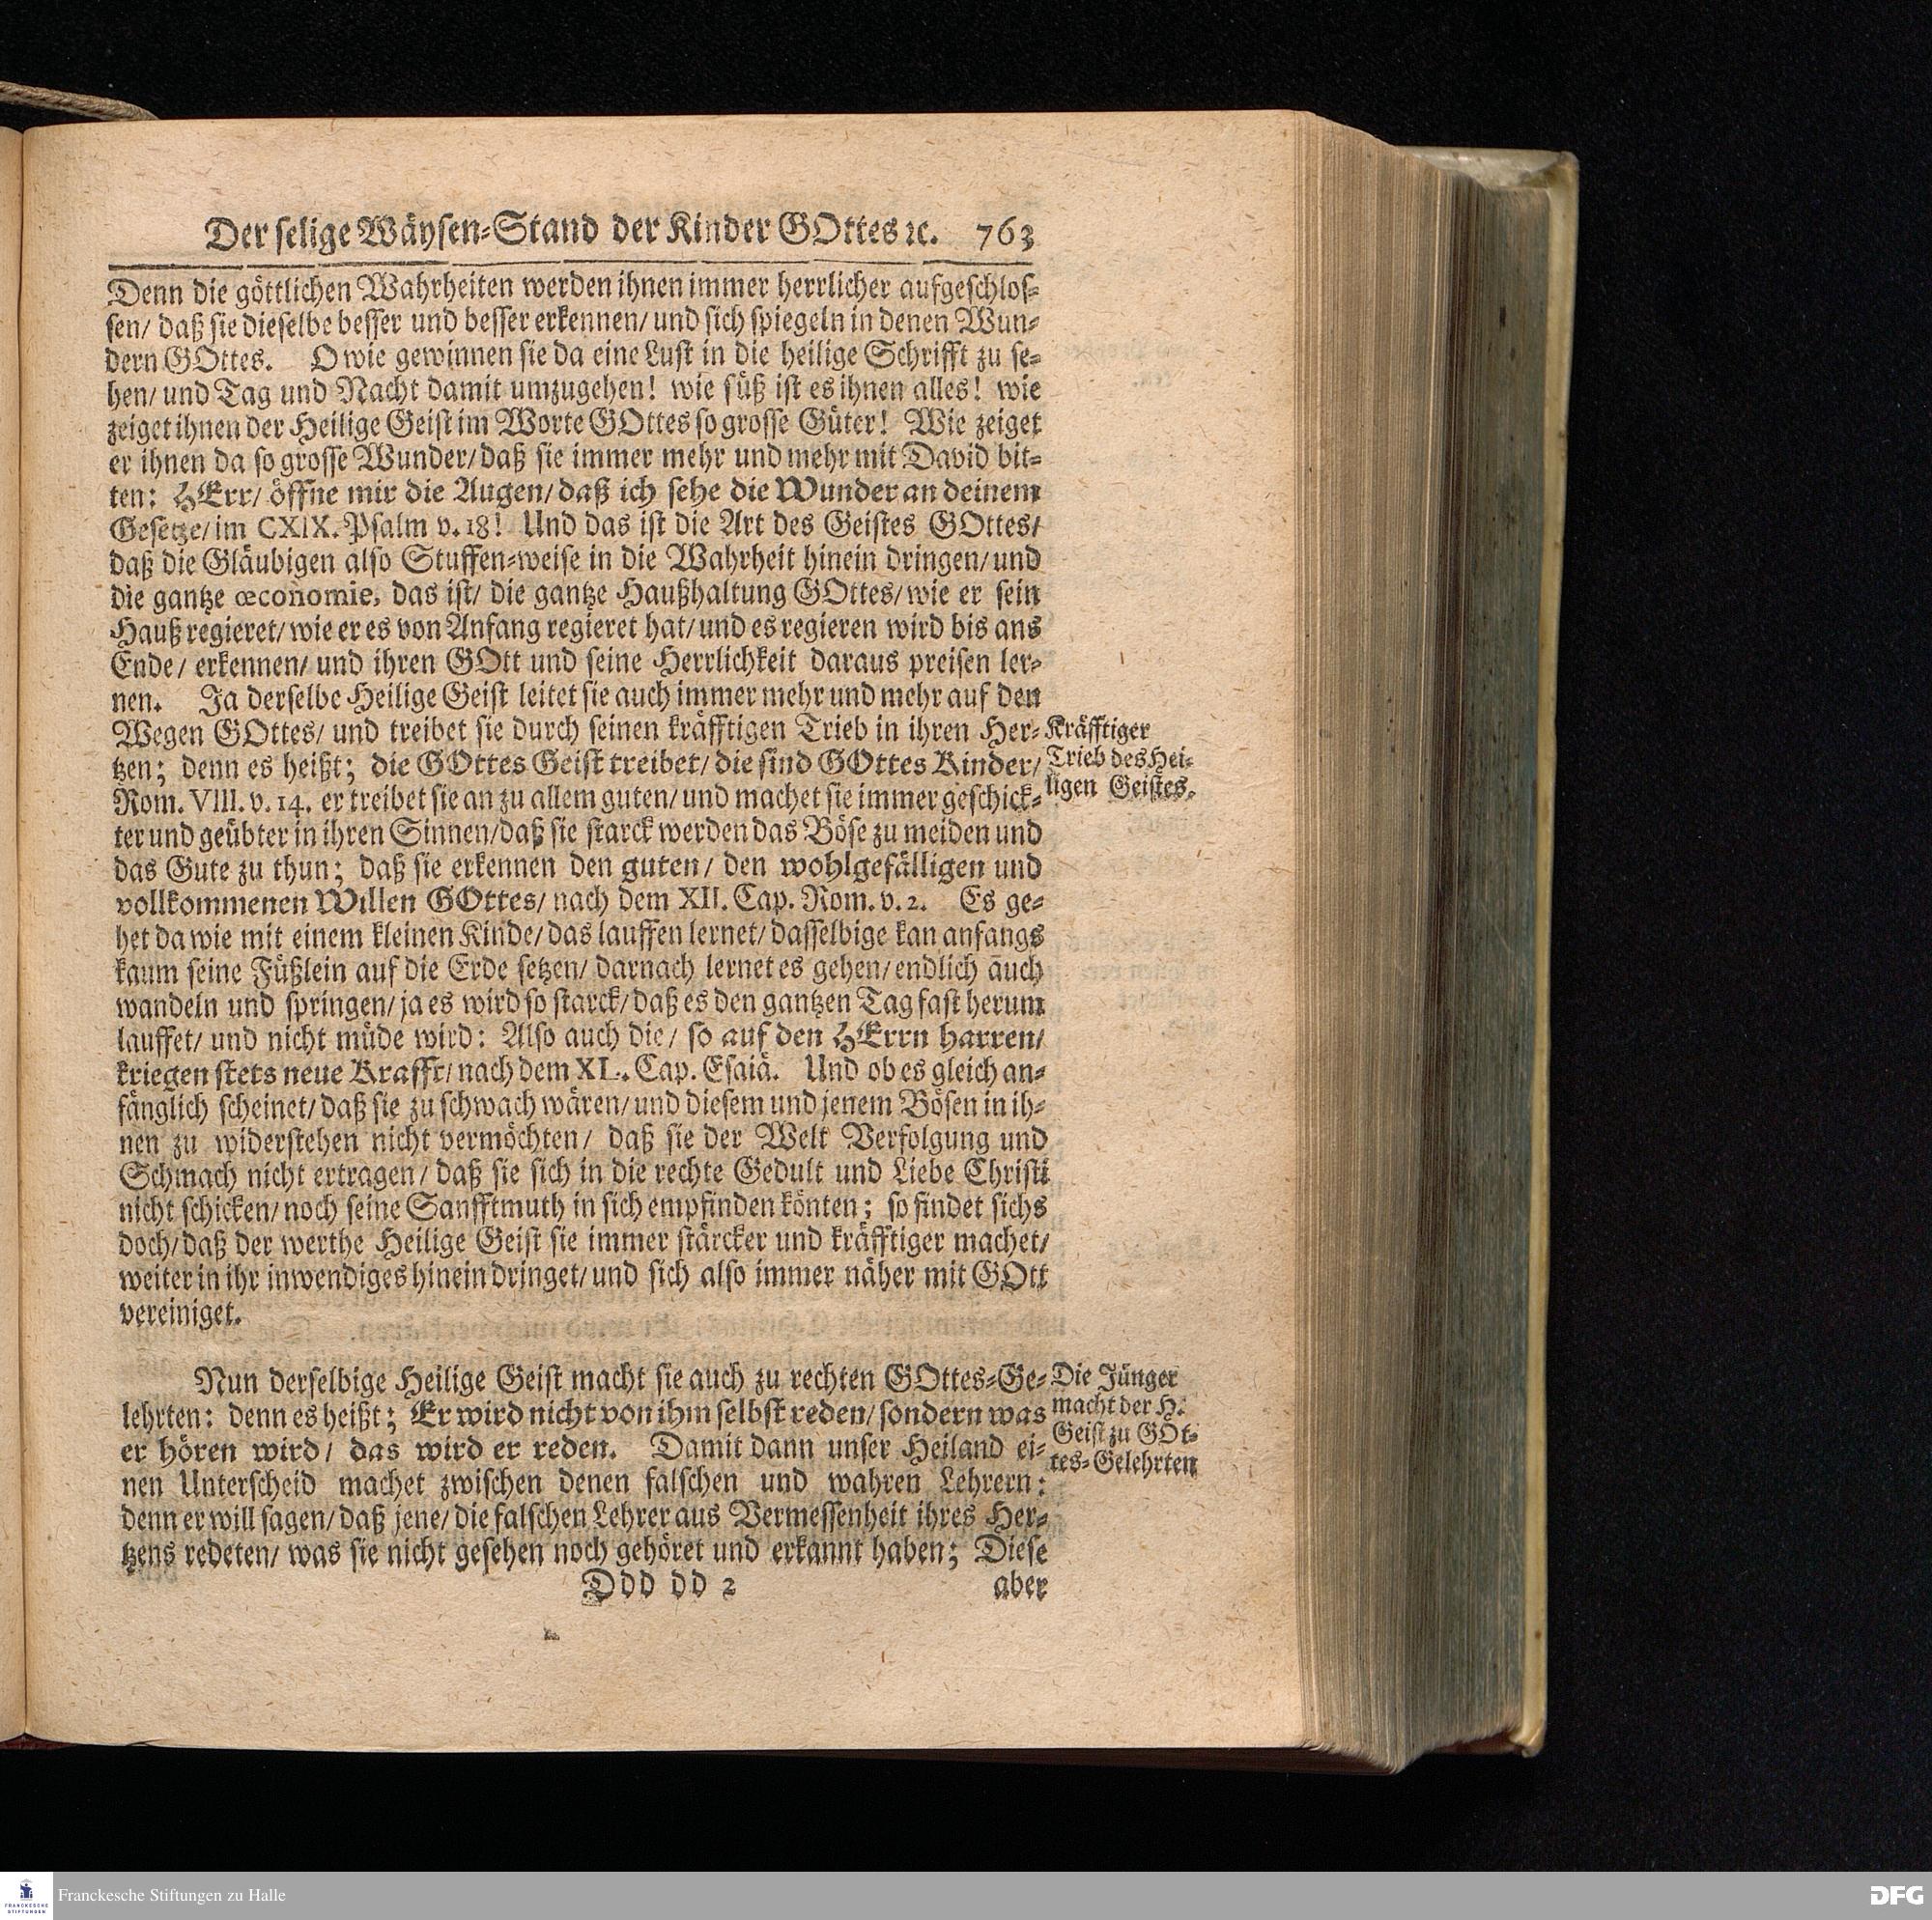 Der selige Wäysen-Stand der Kinder GOttes ꝛc. 763
Denn die göttlichen Wahrheiten werden ihnen immer herrlicher aufgeschlos-
sen/ daß sie dieselbe besser und besser erkennen/ und sich spiegeln in denen Wun-
dern GOttes. O wie gewinnen sie da eine Lust in die heilige Schrifft zu se-
hen/ und Tag und Nacht damit umzugehen! wie süß ist es ihnen alles! wie
zeiget ihnen der Heilige Geist im Worte GOttes so grosse Güter! Wie zeiget
er ihnen da so grosse Wunder/ daß sie immer mehr und mehr mit David bit-
ten: HErr/ öffne mir die Augen/ daß ich sehe die Wunder an deinem
Gesetze/ im CXIX. Psalm v. 18! Und das ist die Art des Geistes GOttes/
daß die Gläubigen also Stuffen-weise in die Wahrheit hinein dringen/ und
die gantze œconomie, das ist/ die gantze Haußhaltung GOttes/ wie er sein
Hauß regieret/ wie er es von Anfang regieret hat/ und es regieren wird bis ans
Ende/ erkennen/ und ihren GOtt und seine Herrlichkeit daraus preisen ler-
nen. Ja derselbe Heilige Geist leitet sie auch immer mehr und mehr auf den
Wegen GOttes/ und treibet sie durch seinen kräfftigen Trieb in ihren Her-
tzen; denn es heißt; die GOttes Geist treibet/ die sind GOttes Kinder/
Rom. VIII. v. 14. er treibet sie an zu allem guten/ und machet sie immer geschick-
ter und geübter in ihren Sinnen/ daß sie starck werden das Böse zu meiden und
das Gute zu thun; daß sie erkennen den guten/ den wohlgefälligen und
vollkommenen Willen GOttes/ nach dem XII. Cap. Rom. v. 2. Es ge-
het da wie mit einem kleinen Kinde/ das lauffen lernet/ dasselbige kan anfangs
kaum seine Füßlein auf die Erde setzen/ darnach lernet es gehen/ endlich auch
wandeln und springen/ ja es wird so starck/ daß es den gantzen Tag fast herum
lauffet/ und nicht müde wird: Also auch die/ so auf den HErrn harren/
kriegen stets neue Krafft/ nach dem XL. Cap. Esaiä. Und ob es gleich an-
fänglich scheinet/ daß sie zu schwach wären/ und diesem und jenem Bösen in ih-
nen zu widerstehen nicht vermöchten/ daß sie der Welt Verfolgung und
Schmach nicht ertragen/ daß sie sich in die rechte Gedult und Liebe Christi
nicht schicken/ noch seine Sanfftmuth in sich empfinden könten; so findet sichs
doch/ daß der werthe Heilige Geist sie immer stärcker und kräfftiger machet/
weiter in ihr inwendiges hinein dringet/ und sich also immer näher mit GOtt
vereiniget.
Kräfftiger
Trieb des Hei-
ligen Geistes.
Nun derselbige Heilige Geist macht sie auch zu rechten GOttes-Ge-
lehrten: denn es heißt; Er wird nicht von ihm selbst reden/ sondern was
er hören wird/ das wird er reden. Damit dann unser Heiland ei-
nen Unterscheid machet zwischen denen falschen und wahren Lehrern:
denn er will sagen/ daß jene/ die falschen Lehrer aus Vermessenheit ihres Her-
tzens redeten/ was sie nicht gesehen noch gehöret und erkannt haben; Diese
Die Jünger
macht der H.
Geist zu GOt-
tes-Gelehrten
Ddd dd 2 aber
FRANCKESCHE
STIFTUNGEN
Franckesche Stiftungen zu Halle
DFG